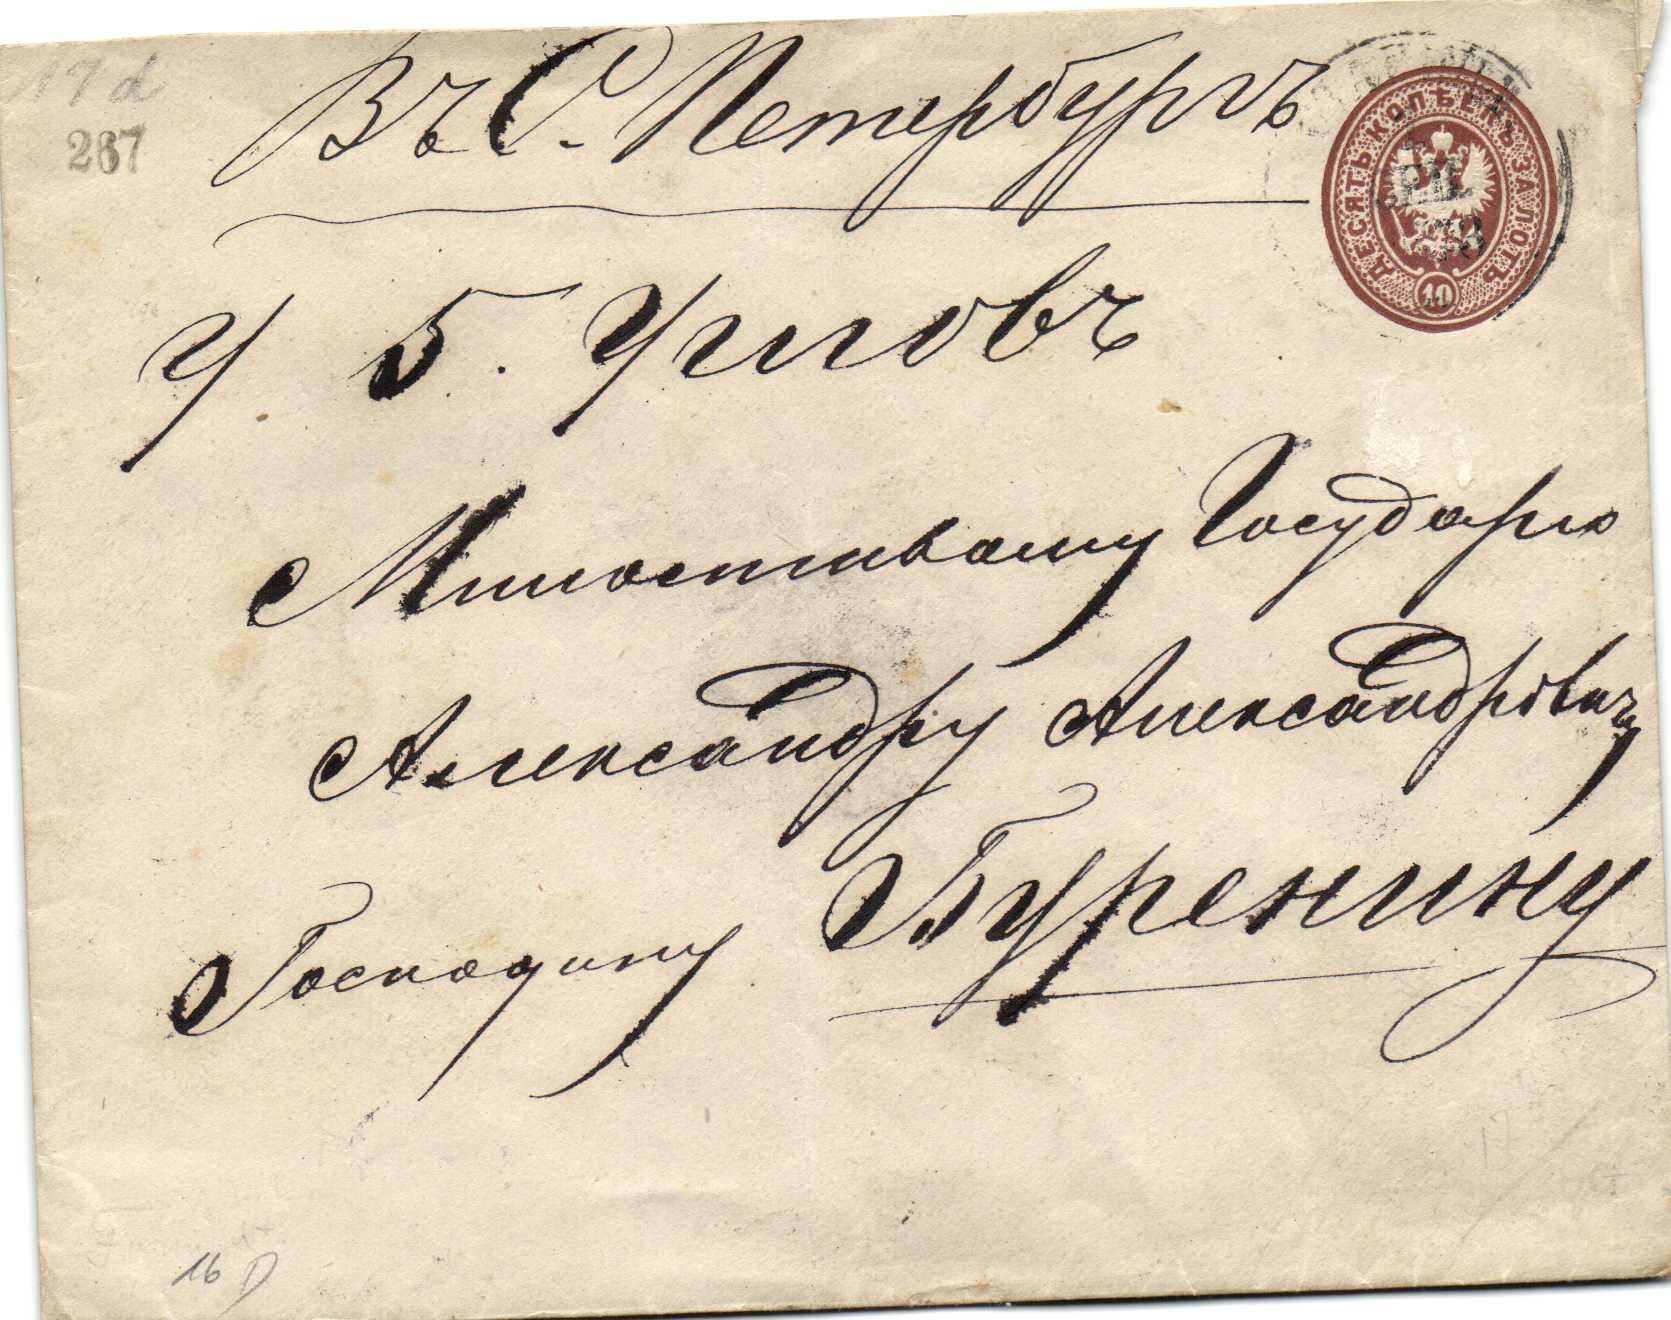 17 d
267
Въ С. Петербургъ
ДЕСЯТЬ КОПѢЕКЪ ЗА ЛОТЪ
10
У 5. Угловъ
Милостивому Государю
Александру Александровичу
Господину Буренину
16 D